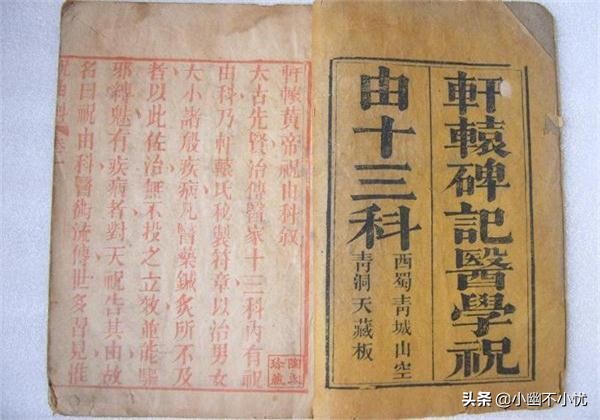 軒轅碑記醫學祝
由十三科
西蜀青城山空
青洞天藏板
軒轅黃帝祝由科叙
太古先賢治傳醫家十三科內有祝
由科乃軒轅氏秘製符章以治男女
大小諸般疾病凡醫藥鍼灸所不及
者以此佐治無不投之立效並能驅
邪縛魅有疾病者對天祝告其由故
名曰祝由科醫術流傳世多罕見惟
祝由科
珍藏
头条 @小幽不小忧